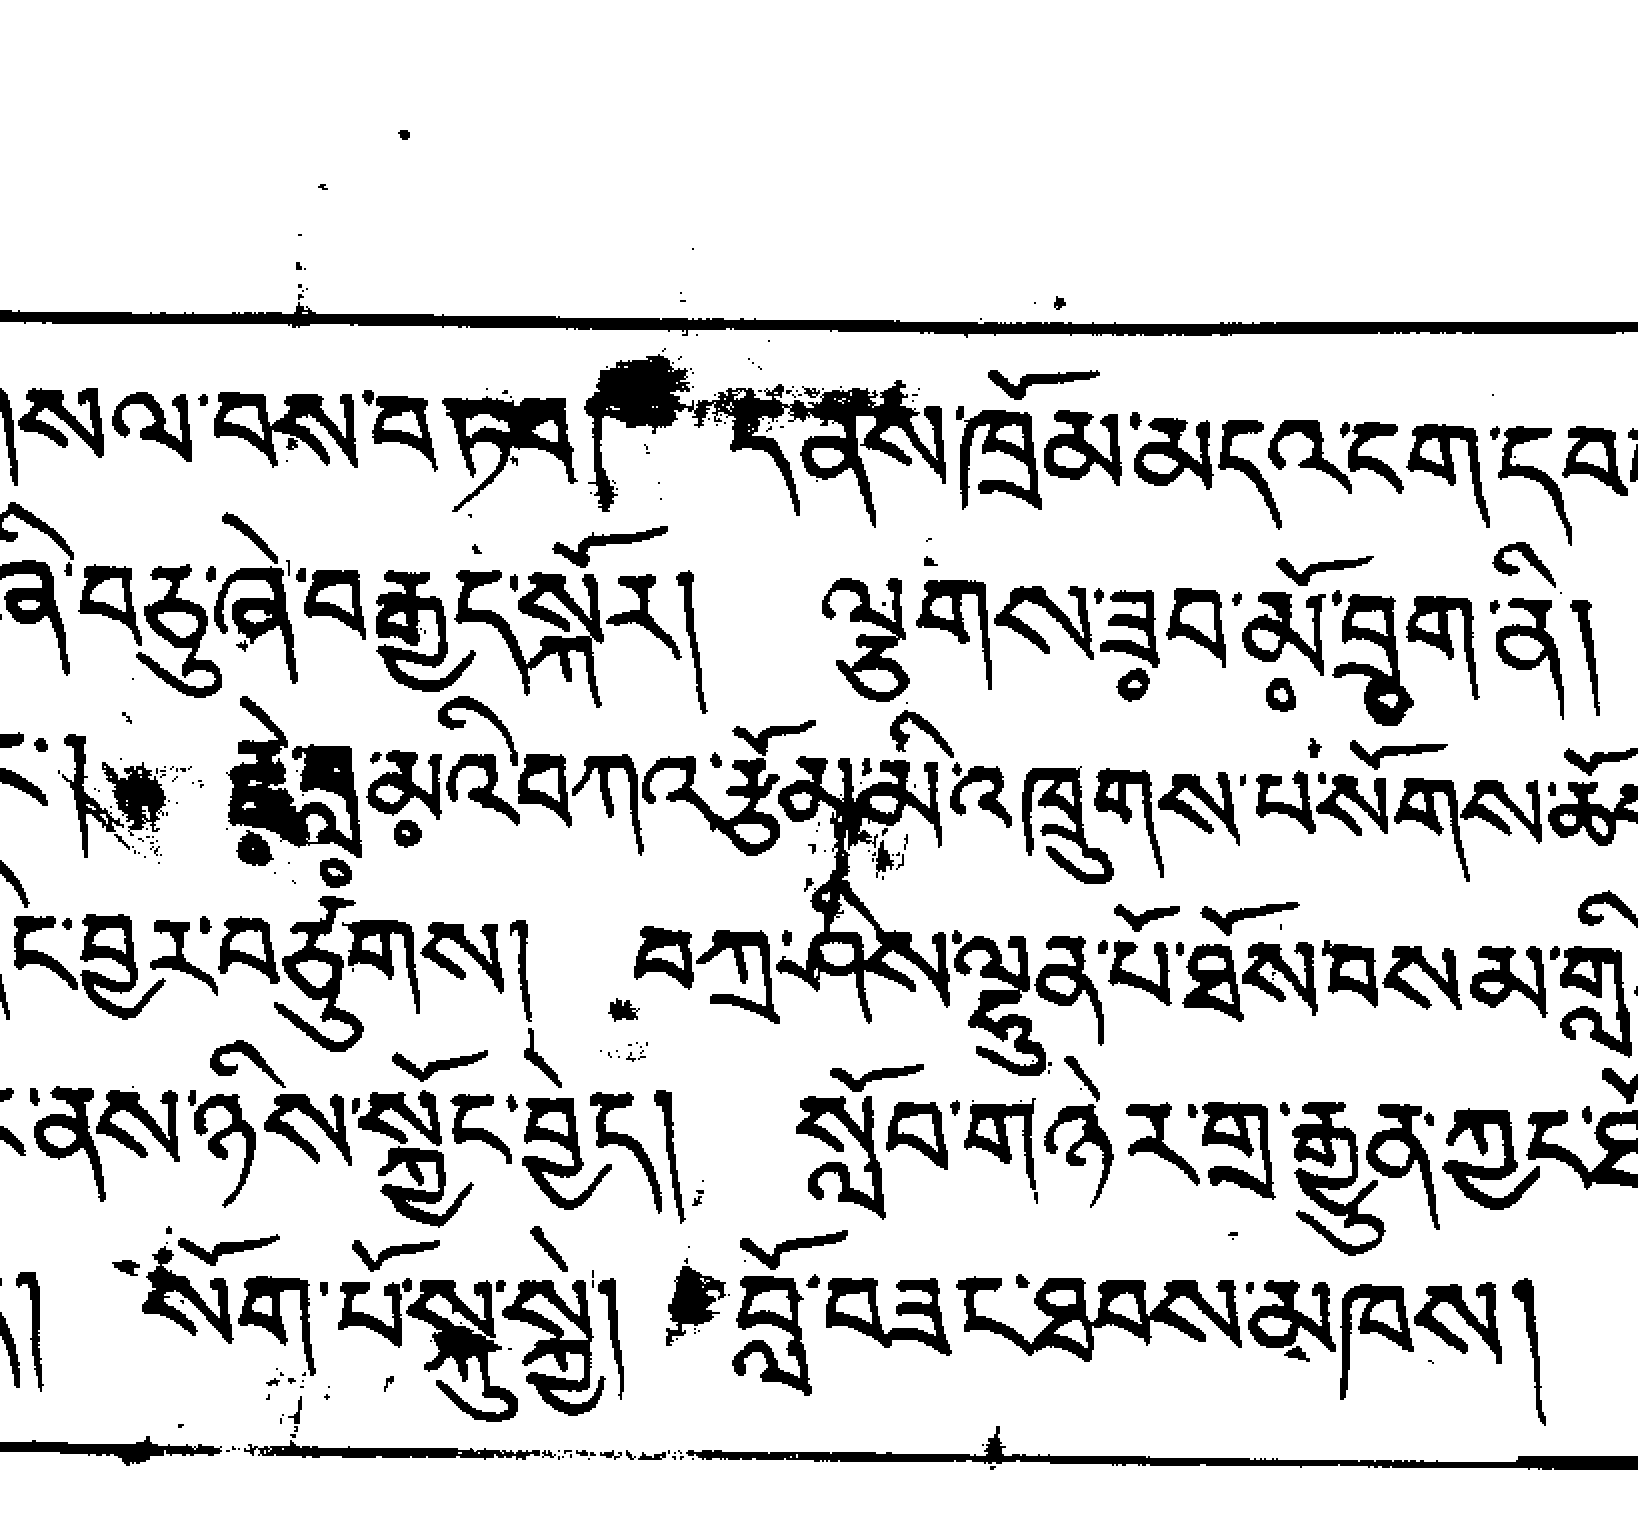 ས་ལ་བས་བཏབ། དནས་ཁྲོམ་མདའ་ངག་དབ
ཞི་བཅུ་ཞེ་བརྒྱད་སྐོར། ལྕགས་ཟམ་མོ་བྲག་ནི།
ང༌། མའི་བཀའ་རྩོམ་མི་འཁྲུགས་པ་སོགས་ཆོས
ང་བྱར་བཙུགས། བཀྲ་ཤིས་ལྷུན་པོ་ཐོས་བསམ་གླི
ང་ནས་ཉིས་སྐྱོང་བྱེད། སློབ་གཉེར་གྲ་རྒྱུན་ཀྱང་ཐོ
སོག་པོ་སྐུ་སྐྱེ། བློ་བཟང་ཐབས་མཁས།